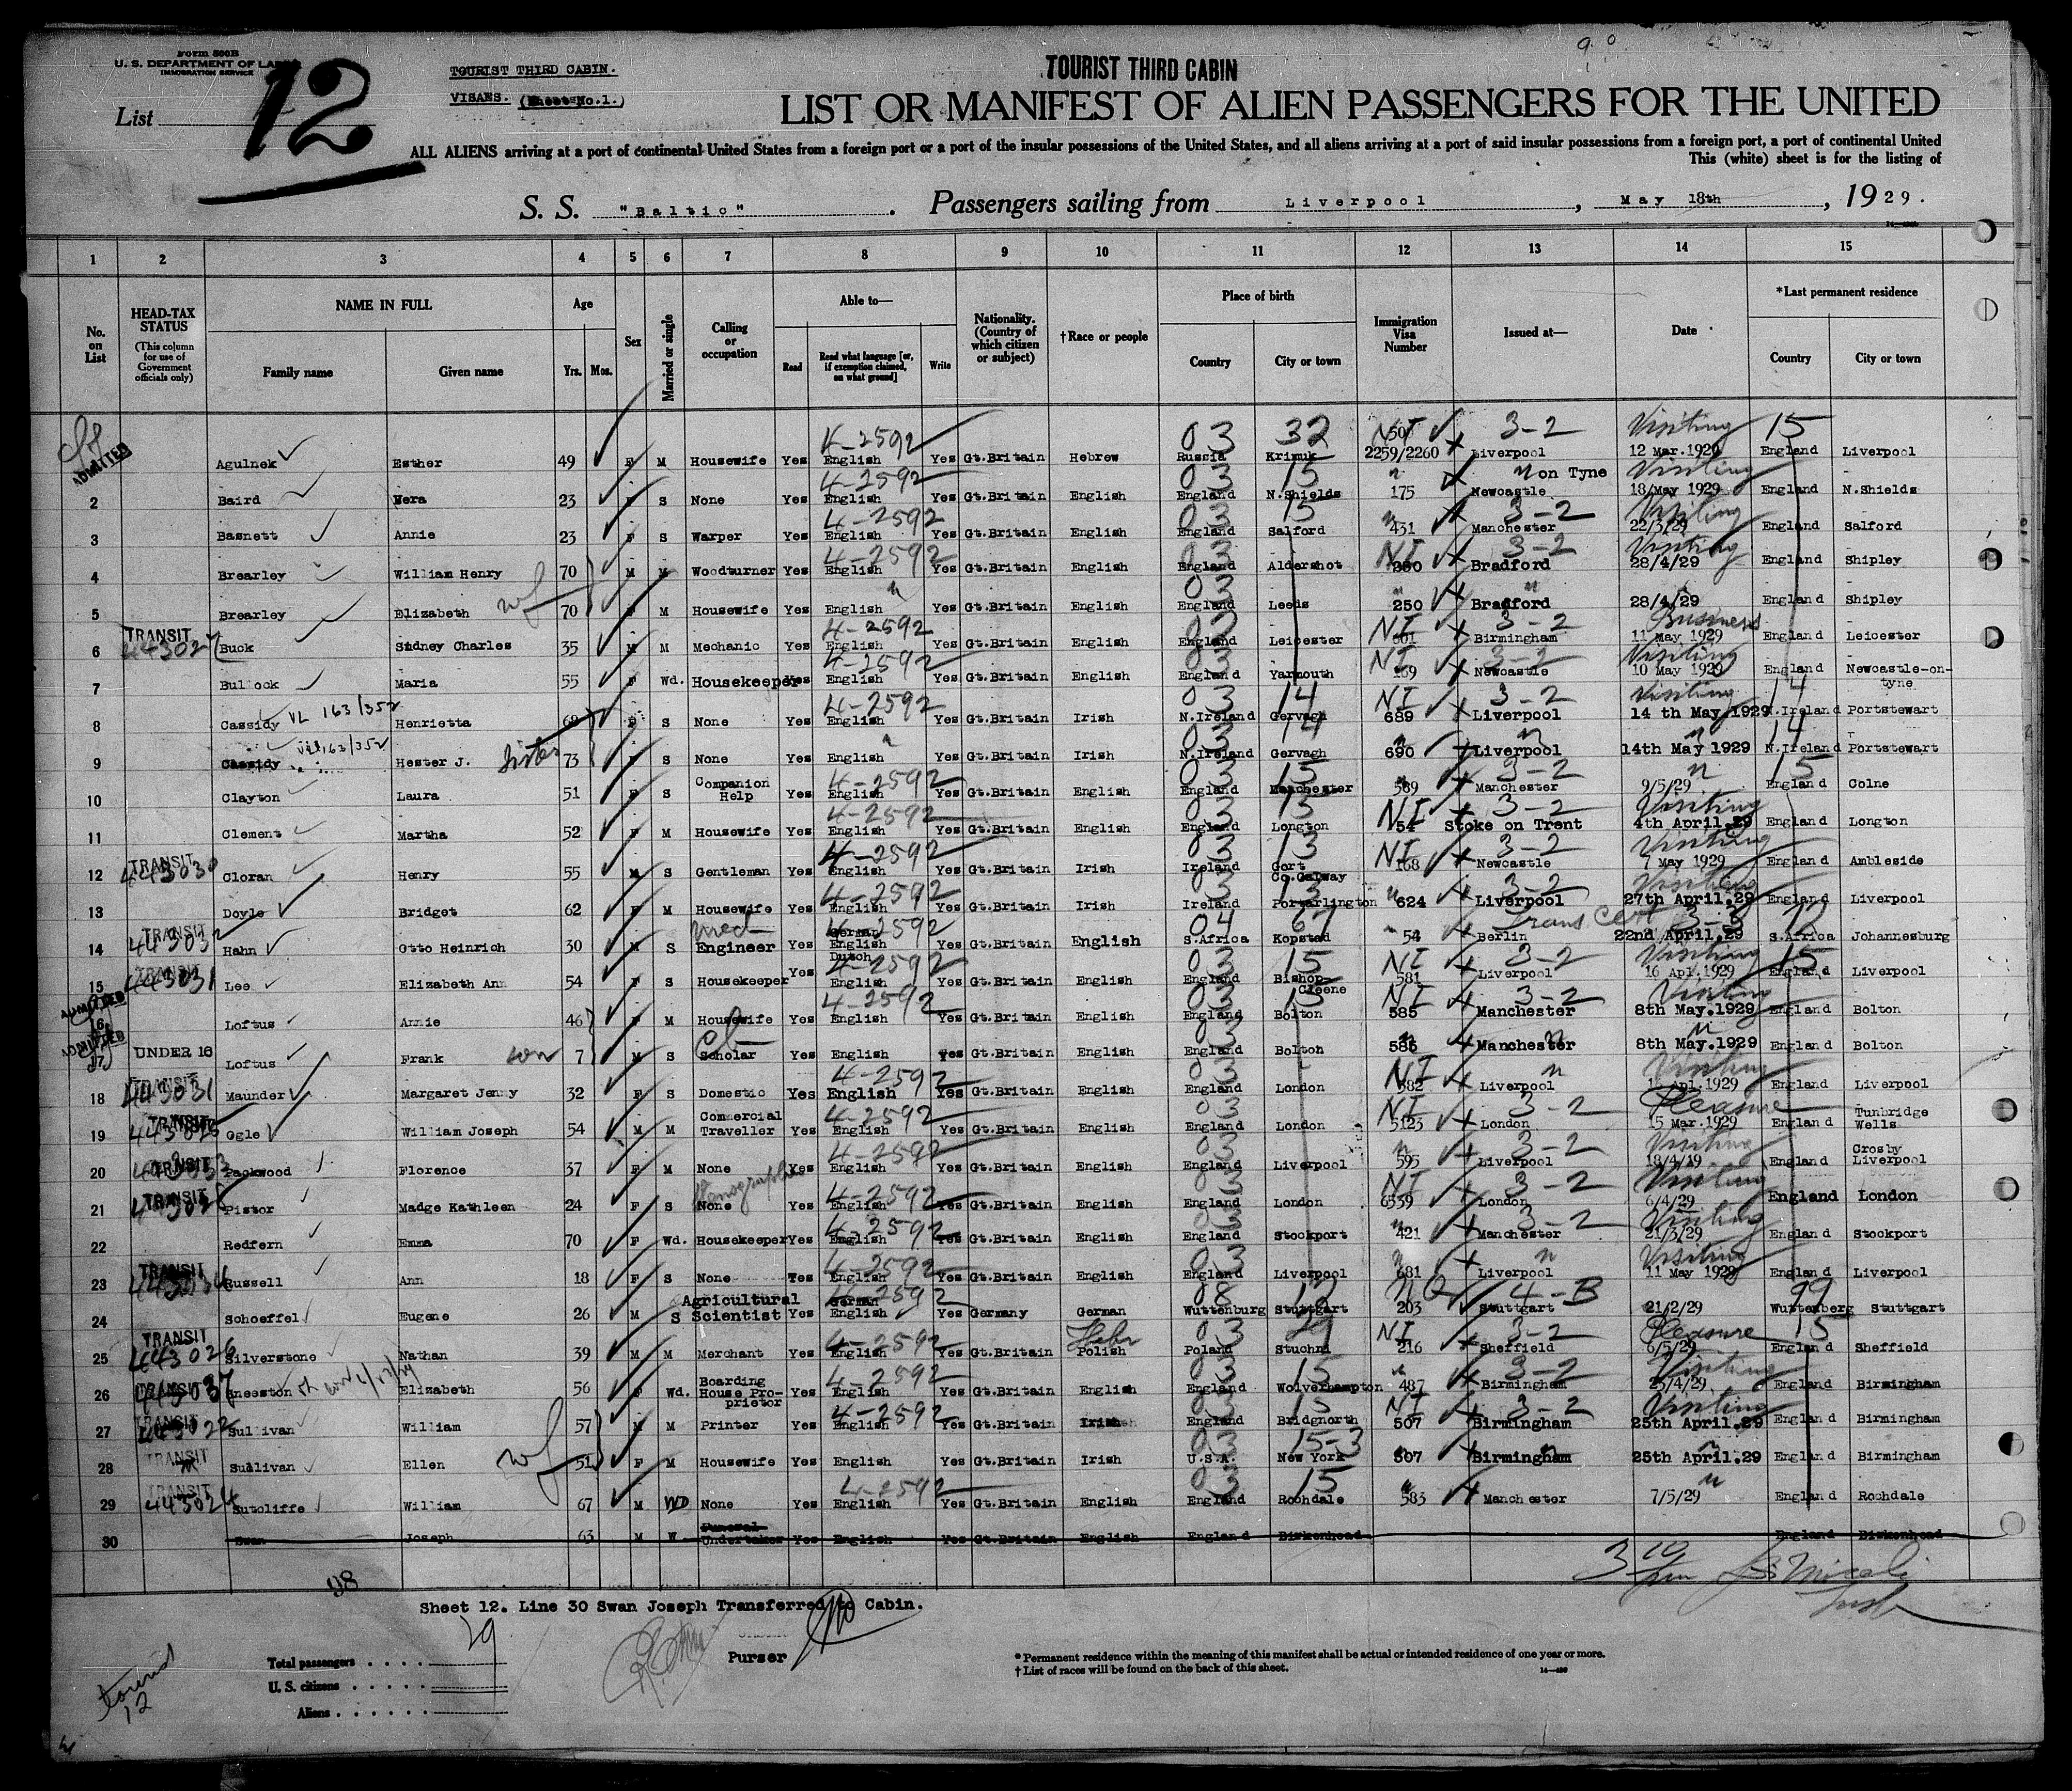 Form 500B
U. S. DEPARTMENT OF LABOR
IMMIGRATION SERVICE
List 12
TOURIST THIRD CABIN.
VISAES. (Sheet No.1.)
TOURIST THIRD CABIN
LIST OR MANIFEST OF ALIEN PASSENGERS FOR THE UNITED
ALL ALIENS arriving at a port of continental United States from a foreign port or a port of the insular possessions of the United States, and all aliens arriving at a port of said insular possessions from a foreign port, a port of continental United
This (white) sheet is for the listing of
S. S. "Baltic". Passengers sailing from Liverpool, May 18th, 1929.
1 2 3 4 5 6 7 8 9 10 11 12 13 14 15
No. on List
HEAD-TAX STATUS (This column for use of Government officials only)
NAME IN FULL Family name Given name
Age Yrs. Mos.
Sex
Married or single
Calling or occupation
Able to— Read Read what language [or, if exemption claimed, on what ground] Write
Nationality. (Country of which citizen or subject)
†Race or people
Place of birth Country City or town
Immigration Visa Number
Issued at—
Date
*Last permanent residence Country City or town
ADMITTED Agulnek Esther 49 F M Housewife Yes English 4-2592 Yes Gt.Britain Hebrew Russia Krimuk 03 32 2259/2260 Liverpool 3-2 12 Mar.1929 Visiting England Liverpool 15
2 Baird Vera 23 F S None Yes English 4-2592 Yes Gt.Britain English England N.Shields 03 15 175 Newcastle on Tyne 18/May 1929 Visiting England N.Shields
3 Basnett Annie 23 F S Warper Yes English 4-2592 Yes Gt.Britain English England Salford 03 15 431 Manchester 3-2 22/3/29 Visiting England Salford
4 Brearley William Henry 70 M M Woodturner Yes English 4-2592 Yes Gt.Britain English England Aldershot 03 NI Bradford 3-2 28/4/29 Visiting England Shipley
5 Brearley Elizabeth wf 70 F M Housewife Yes English Yes Gt.Britain English England Leeds 03 250 Bradford 28/4/29 England Shipley
6 TRANSIT Buck Sidney Charles 35 M M Mechanic Yes English 4-2592 Yes Gt.Britain English England Leicester 03 NI Birmingham 3-2 11 May 1929 Business England Leicester
7 Bullock Maria 55 F Wd. Housekeeper Yes English 4-2592 Yes Gt.Britain English England Yarmouth 03 NI Newcastle 3-2 10 May 1929 Visiting England Newcastle-on-tyne
8 Cassidy VL 163/352 Henrietta F S None Yes English 4-2592 Yes Gt.Britain Irish N.Ireland Gervagh 03 14 NI 689 Liverpool 3-2 14 th May 1929 Visiting N.Ireland Portstewart 14
9 Cassidy Hester J. sister 73 F S None Yes English Yes Gt.Britain Irish N.Ireland Gervagh 03 14 690 Liverpool 14th May 1929 N.Ireland Portstewart 14
10 Clayton Laura 51 F S Companion Help Yes English 4-2592 Yes Gt.Britain English England Manchester 03 15 589 Manchester 3-2 9/5/29 England Colne 15
11 Clement Martha 52 F M Housewife Yes English 4-2592 Yes Gt.Britain English England Longton 03 15 NI 54 Stoke on Trent 3-2 4th April.29 Visiting England Longton
12 TRANSIT 443030 Cloran Henry 55 M S Gentleman Yes English 4-2592 Yes Gt.Britain Irish Ireland Gort Co.Galway 03 13 NI 168 Newcastle 3-2 7 May 1929 Visiting England Ambleside
13 Doyle Bridget 62 F M Housewife Yes English 4-2592 Yes Gt.Britain Irish Ireland Portarlington 03 13 624 Liverpool 3-2 27th April.29 Visiting England Liverpool
14 TRANSIT 443032 Hahn Otto Heinrich 30 M S Engineer Yes German English Dutch 4-2592 Yes Gt.Britain English S.Africa Kopstad 04 67 54 Berlin 22nd April.29 Trans Cert 3-3 S.Africa Johannesburg 72
15 TRANSIT 443031 Lee Elizabeth Ann 54 F S Housekeeper Yes English 4-2592 Yes Gt.Britain English England Bishop Cleene 03 15 NI 581 Liverpool 3-2 16 Apl.1929 Visiting England Liverpool 15
ADMITTED 16 Loftus Annie 46 F M Housewife Yes English 4-2592 Yes Gt.Britain English England Bolton 03 15 NI 585 Manchester 3-2 8th May.1929 Visiting England Bolton
ADMITTED 17 UNDER 16 Loftus Frank son 7 M S Scholar Yes English Yes Gt.Britain English England Bolton 03 586 Manchester 8th May.1929 England Bolton
18 TRANSIT 443031 Maunder Margaret Jenny 32 F S Domestic Yes English 4-2592 Yes Gt.Britain English England London 03 NI 582 Liverpool Apl.1929 Visiting England Liverpool
19 TRANSIT Ogle William Joseph 54 M M Commercial Traveller Yes English 4-2592 Yes Gt.Britain English England London 03 NI 5123 London 3-2 15 Mar.1929 Pleasure England Tunbridge Wells
20 TRANSIT Packwood Florence 37 F M None Yes English 4-2592 Yes Gt.Britain English England Liverpool 03 595 Liverpool 3-2 18/4/19 Visiting England Crosby Liverpool
21 TRANSIT Pistor Madge Kathleen 24 F S None Stenographer Yes English 4-2592 Yes Gt.Britain English England London 03 NI 6559 London 3-2 6/4/29 Visiting England London
22 Redfern Emma 70 F Wd. Housekeeper Yes English 4-2592 Yes Gt.Britain English England Stockport 03 421 Manchester 3-2 21/3/29 Visiting England Stockport
23 TRANSIT Russell Ann 18 F S None Yes English 4-2592 Yes Gt.Britain English England Liverpool 03 681 Liverpool 11 May 1929 Visiting England Liverpool
24 Schoeffel Eugene 26 M S Agricultural Scientist Yes German English 4-2592 Yes Germany German Wurttenburg Stuttgart 08 203 Stuttgart 4-B 21/2/29 Wurttenberg Stuttgart 99
25 TRANSIT 443026 Silverstone Nathan 39 M M Merchant Yes English 4-2592 Yes Gt.Britain Hebr Polish Poland Stuchni 03 29 NI 216 Sheffield 3-2 6/5/29 Pleasure England Sheffield 15
26 TRANSIT Sneeston Elizabeth 56 F Wd. Boarding House Pro-prietor Yes English 4-2592 Yes Gt.Britain English England Wolverhampton 03 15 487 Birmingham 3-2 25/4/29 Visiting England Birmingham
27 TRANSIT 443022 Sullivan William 57 M M Printer Yes English 4-2592 Yes Gt.Britain Irish England Bridgnorth 03 15 NI 507 Birmingham 3-2 25th April.29 Visiting England Birmingham
28 TRANSIT Sullivan Ellen wf 51 F M Housewife Yes English Yes Gt.Britain Irish U.S.A. New York 03 15-3 507 Birmingham 25th April.29 England Birmingham
29 TRANSIT 443024 Sutcliffe William 67 M WD None Yes English 4-2592 Yes Gt.Britain English England Rochdale 03 15 583 Manchester 7/5/29 England Rochdale
30 Swan Joseph 63 M W. Funeral Undertaker Yes English Yes Gt.Britain English England Birkenhead England Birkenhead
98
3 10 pm
Sheet 12. Line 30 Swan Joseph Transferred to Cabin.
Purser
Total passengers 29
U. S. citizens
Aliens
tourist 12
* Permanent residence within the meaning of this manifest shall be actual or intended residence of one year or more.
† List of races will be found on the back of this sheet.